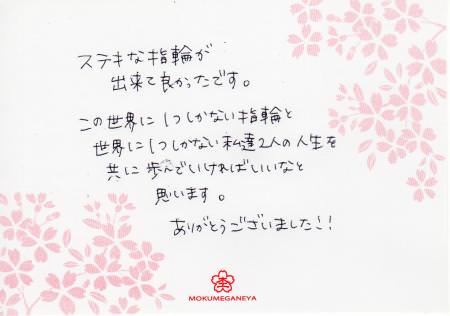 ステキな指輪が
出来て良かったです。
この世界に1つしかない指輪と
世界に1つしかない私達2人の人生を
共に歩んでいければいいなと
思います。
ありがとうございました!!
MOKUMEGANEYA